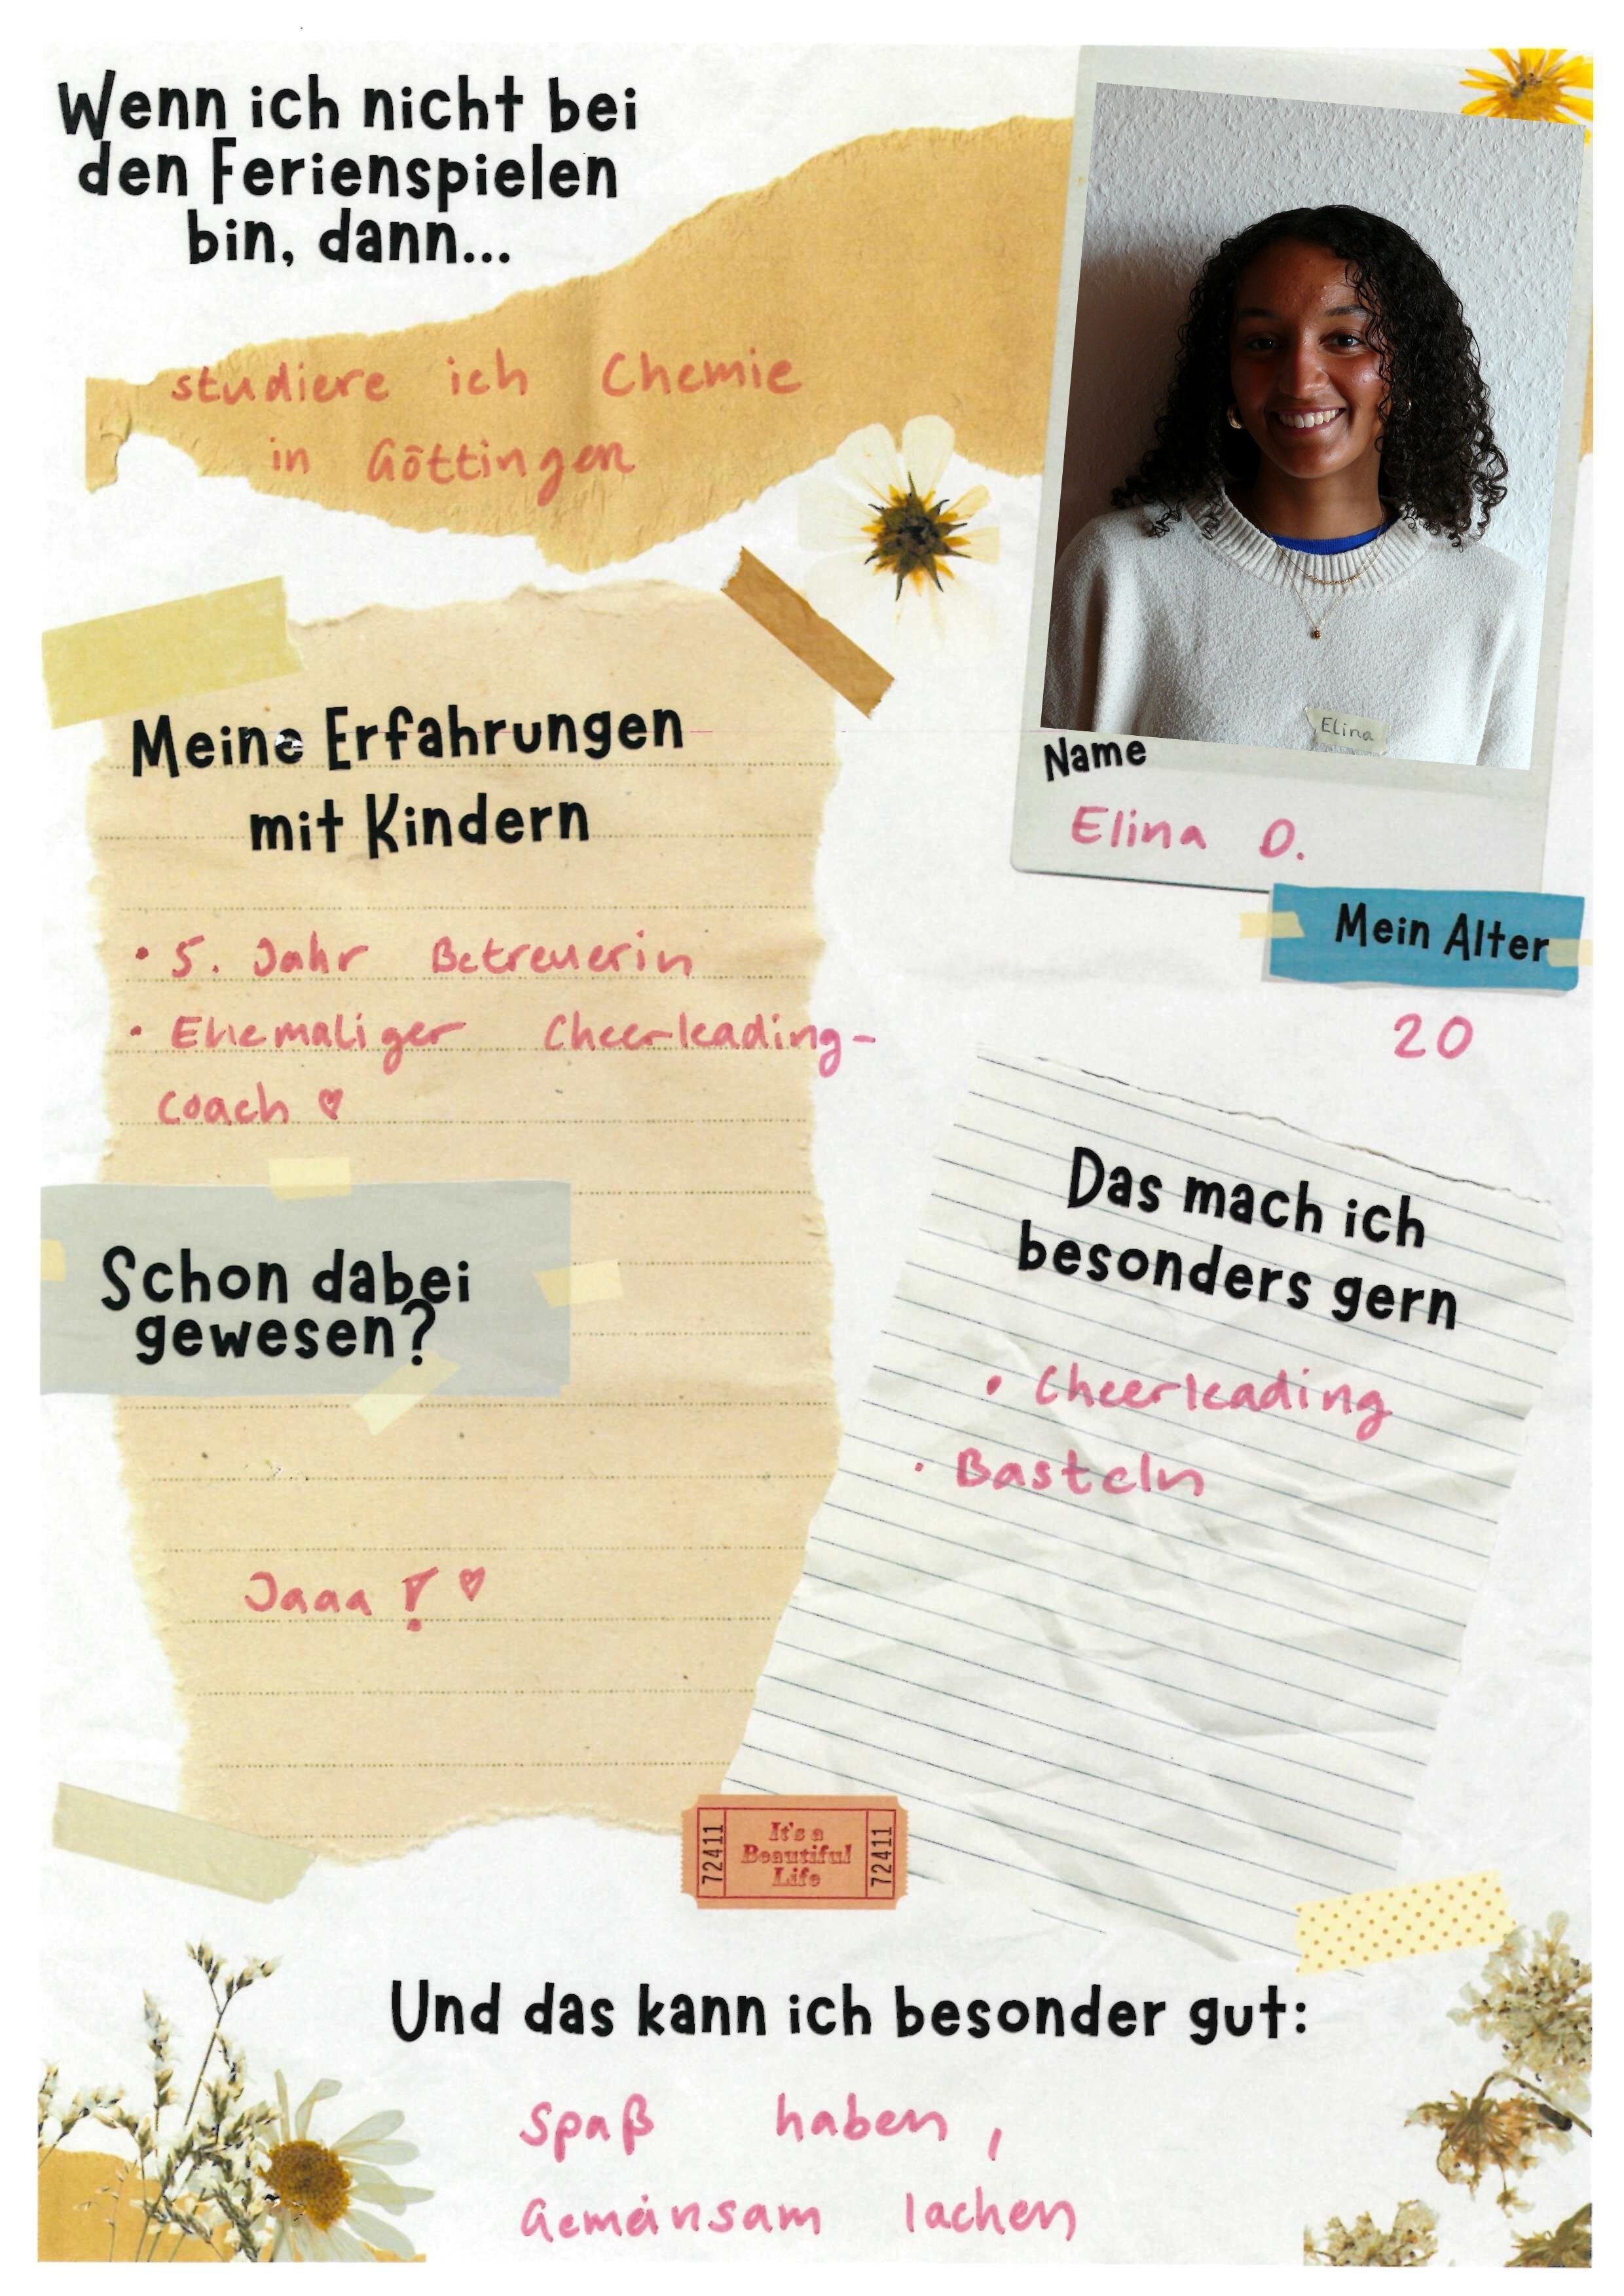 Wenn ich nicht bei
den Ferienspielen
bin, dann...
studiere ich Chemie
in Göttingen
Elina
Name
Elina D.
Mein Alter
20
Meine Erfahrungen
mit Kindern
• 5. Jahr Betreuerin
• Ehemaliger Cheerleading-
coach ♡
Schon dabei
gewesen?
Jaaa ! ♡
Das mach ich
besonders gern
• Cheerleading
• Basteln
72411
It's a
Beautiful
Life
72411
Und das kann ich besonder gut:
Spaß haben,
Gemeinsam lachen